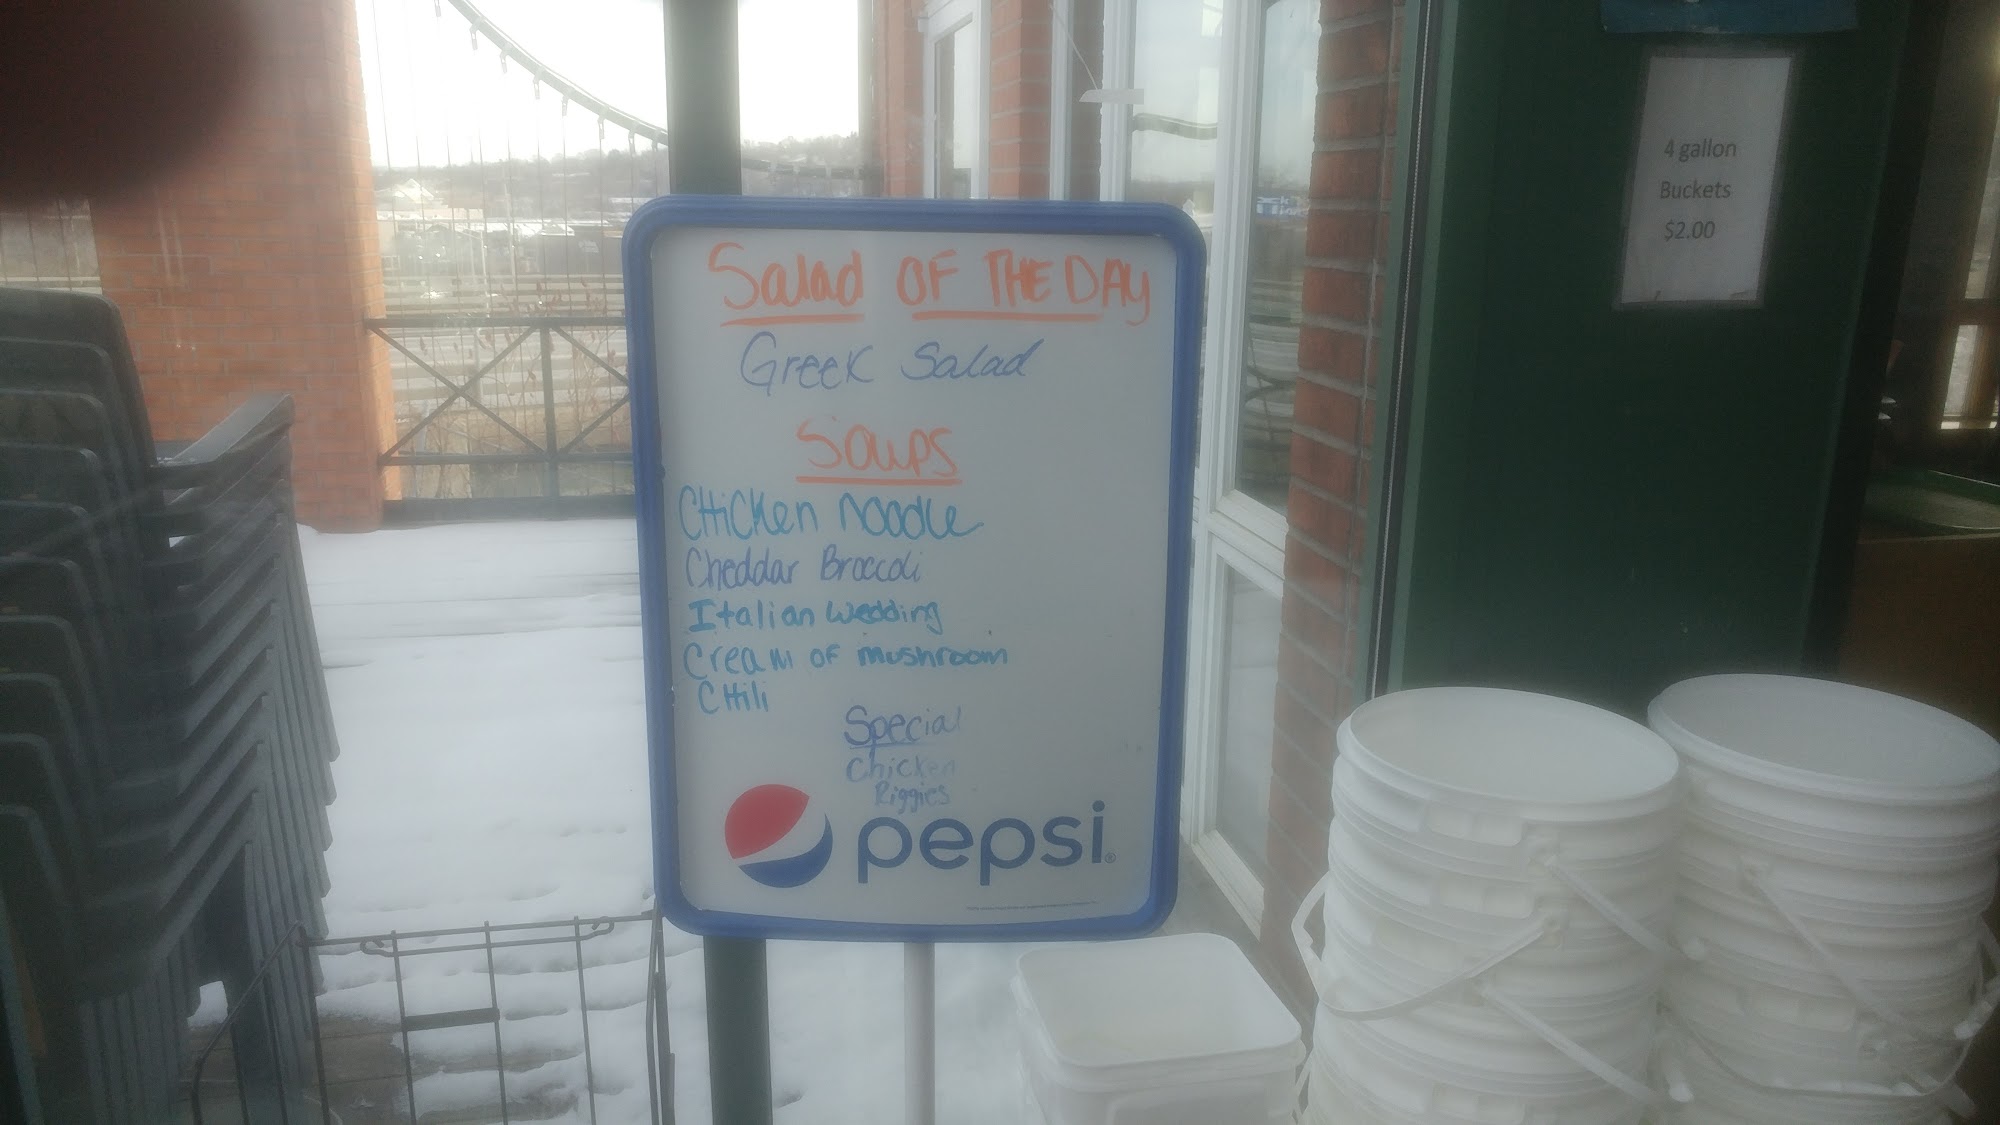 Salad OF THE DAY
Greek Salad
Soups
CHiCken Noodle
Cheddar Broccoli
Italian Wedding
Cream of mushroom
CHili
Special
Chicken
Riggies
pepsi
4 gallon
Buckets
$2.00